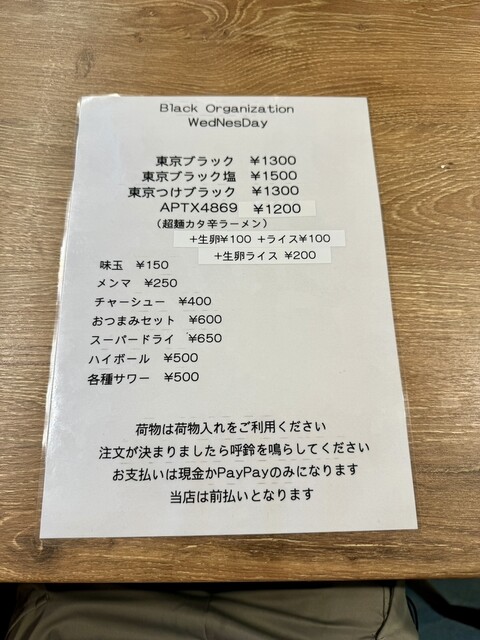 Black Organization
WedNesDay
東京ブラック ¥1300
東京ブラック塩 ¥1500
東京つけブラック ¥1300
APTX4869 ¥1200
(超麺カタ辛ラーメン)
+生卵¥100 +ライス¥100
+生卵ライス ¥200
味玉 ¥150
メンマ ¥250
チャーシュー ¥400
おつまみセット ¥600
スーパードライ ¥650
ハイボール ¥500
各種サワー ¥500
荷物は荷物入れをご利用ください
注文が決まりましたら呼鈴を鳴らしてください
お支払いは現金かPayPayのみになります
当店は前払いとなります